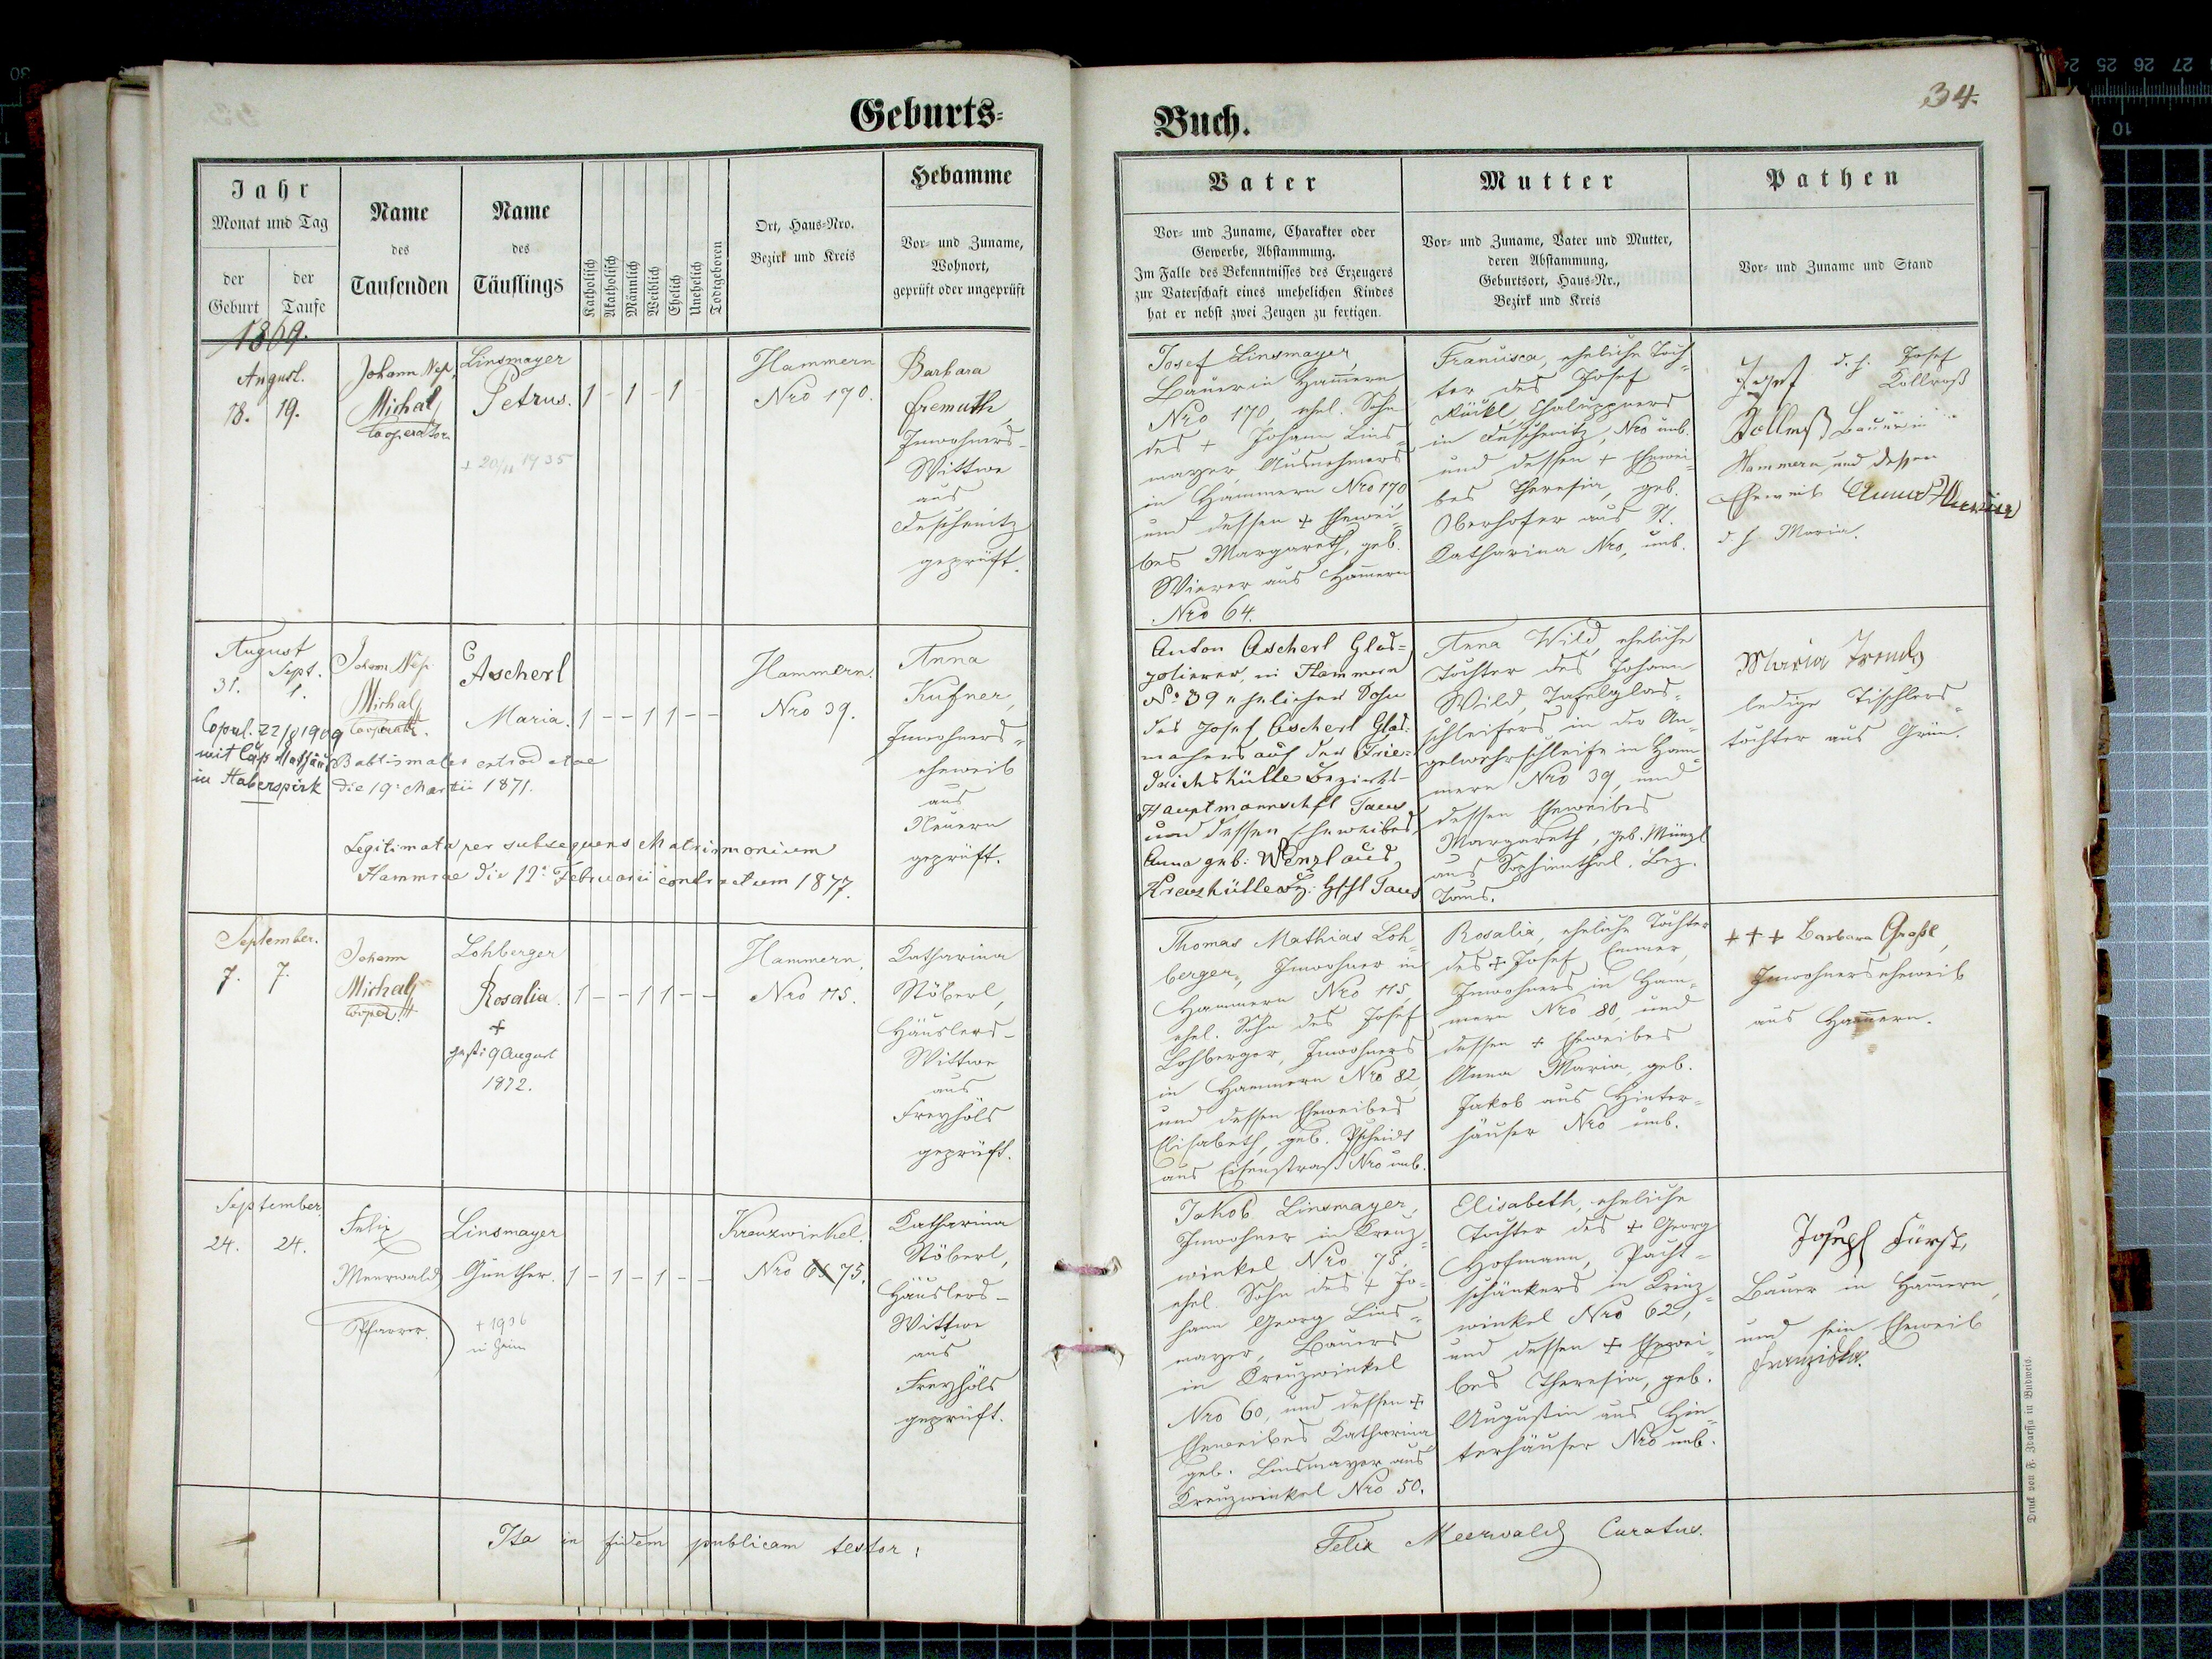 Geburts-
Jahr
Monat und Tag
der Geburt
der Taufe
Name des Taufenden
Name des Täuflings
Katholisch
Akatholisch
Männlich
Weiblich
Ehelich
Unehelich
Todtgeboren
Ort, Haus-Nro.
Bezirk und Kreis
Hebamme
Vor- und Zuname,
Wohnort,
geprüft oder ungeprüft
1869.
August.
18. 19.
Johann Nep.
Michal
Cooperator
Linsmayer
Petrus.
1 - 1 - 1
Hammern
Nro 170.
Barbara
Fremuth,
Inwohners-
Wittwe
aus
Deschenitz
geprüft.
August
31. Sept. 1.
Copul. 22/8 1909
in Haberspirk
Johann Nep.
Michal
Cooperator.
Ascherl
Maria.
1 - - 1 1 - -
Hammern.
Nro 39.
Anna
Kufner,
Inwohners-
eheweib
aus
Neuern
geprüft.
die 19. Martii 1871.
Legitimata per subsequens Matrimonium
Hammrae die 12. Februarii contractum 1877.
September.
7. 7.
Johann
Michal
Cooper.
Lohberger
Rosalia.
+
gest: 9 August
1872.
1 - - 1 1 - -
Hammern.
Nro 115.
Katharina
Stöberl,
Häuslers-
Wittwe
aus
Freyhöls
geprüft.
September.
24. 24.
Felix
Meerwald
Pfarrer.
Linsmayer
Günther.
+ 1936
1 - 1 - 1 - -
Kreuzwinkel.
Nro 75.
Katharina
Stöberl,
Häuslers-
Wittwe
aus
Freyhöls
geprüft.
Ita in fidem publicam testor:
34.
Buch.
Vater
Vor- und Zuname, Charakter oder
Gewerbe, Abstammung.
Im Falle des Bekenntnisses des Erzeugers
zur Vaterschaft eines unehelichen Kindes
hat er nebst zwei Zeugen zu fertigen.
Mutter
Vor- und Zuname, Vater und Mutter,
deren Abstammung,
Geburtsort, Haus-Nr.,
Bezirk und Kreis
Pathen
Vor- und Zuname und Stand
Josef Linsmayer,
Bauer in Hammern
Nro 170, ehel. Sohn
des + Johann Lins-
mayer, Ausnehmers
in Hammern Nro 170
und dessen + Ehewei-
bes Margareth, geb.
Wierer aus Hammern
Nro 64.
Francisca, eheliche Toch-
ter des Josef
Rückl, Chaluppners
in Deschenitz, Nro unb.
und dessen + Ehewei-
bes Theresia, geb.
Oberhofer aus St.
Katharina Nro, unb.
Josef d. h. Josef
Kollroß
Bauer in
Hammern und dessen
Eheweib Anna Maria
d. h. Maria.
Anton Ascherl Glas-
polierer, in Hammern
No 39 ehelicher Sohn
des Josef Ascherl Glas-
machers auf der Frie-
drichshütte Bezirks-
Hauptmannschft Taus
und dessen Eheweibes
Anna geb: Wenzl aus
Kreuzhütte Bz: Hschft Taus
Anna Wild, eheliche
Tochter des Johann
Wild, Tafelglas-
schleifers in der An-
gelwehrschleife in Ham-
mern Nro 39, und
dessen Eheweibes
Margareth, geb. Münzl
aus Sophienthal, Bez.
Taus.
Maria Trends
ledige Tischlers-
tochter aus Grün.
Thomas Mathias Loh-
berger, Inwohner in
Hammern Nro 115,
ehel. Sohn des Josef
Lohberger, Inwohners
in Hammern Nro 82,
und dessen Eheweibes
Elisabeth, geb. Pscheidt
aus Eisenstraß Nro unb.
Rosalia, eheliche Tochter
des + Josef Emmer,
Inwohners in Ham-
mern Nro 80, und
dessen + Eheweibes
Anna Maria, geb.
Jakob aus Hinter-
häuser Nro unb.
+++ Barbara Graßl,
Inwohnerseheweib
aus Hammern.
Jakob Linsmayer,
Inwohner in Kreuz-
winkel Nro 75,
ehel. Sohn des + Jo-
hann Georg Lins-
mayer, Bauers
in Kreuzwinkel
Nro 60, und dessen +
Eheweibes Katharina
geb. Linsmayer aus
Kreuzwinkel Nro 50.
Elisabeth, eheliche
Tochter des + Georg
Hofmann, Pacht-
schänkers in Kreuz-
winkel Nro 62,
und dessen + Ehewei-
bes Theresia, geb.
Augustin aus Hin-
terhäuser Nro unb.
Joseph Fürst,
Bauer in Hammern,
und sein Eheweib
Franziska.
Felix Meerwald Curatus.
Druck von F. Zdarssa in Budweis.